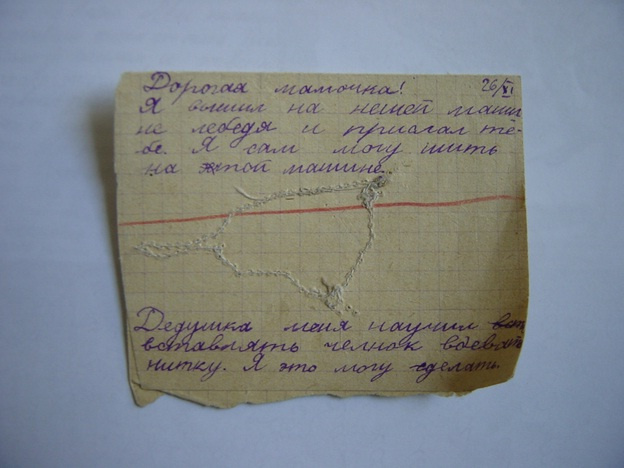 Дорогая мамочка! 26/XI
Я вышил на нешей маши
не лебедя и прислал те-
бе. Я сам могу шить
на этой машине.
Дедушка меня научил
вставлять челнок вдевать
нитку. Я это могу сделать